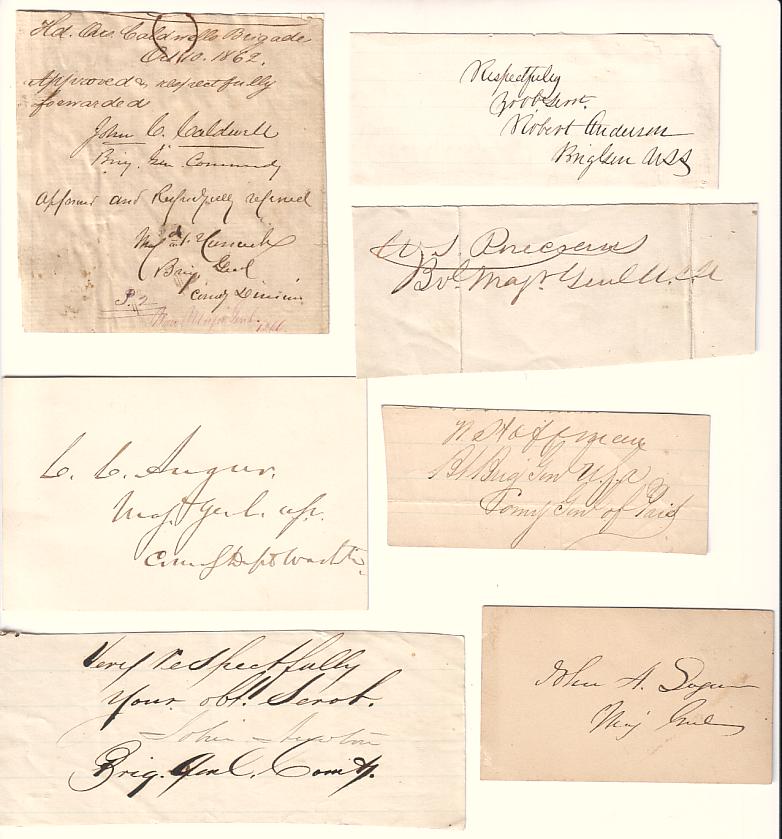 Hd. Qrs. Caldwells Brigade
Oct 10. 1862.
Approved & respectfully
forwarded
John C. Caldwell
Brig. Gen. Commdg
and Respectfully
Winf'd S. Hancock
Brig Genl
Comdg Division
P. 2
Respectfully
Yr obt Servt.
Robert Anderson
Brig Gen USA
Bvt. Majr Genl U.S.A
C. C. Augur.
Maj. Genl. Vols.
Comdg Dept Washtn.
W. Hoffman
Bt Brig Gen U.S.A
Comy Gen of Pris
Very respectfully
Your obt. Servt.
John Newton
Brig. Genl. Comdg.
John A. Logan
Maj Genl